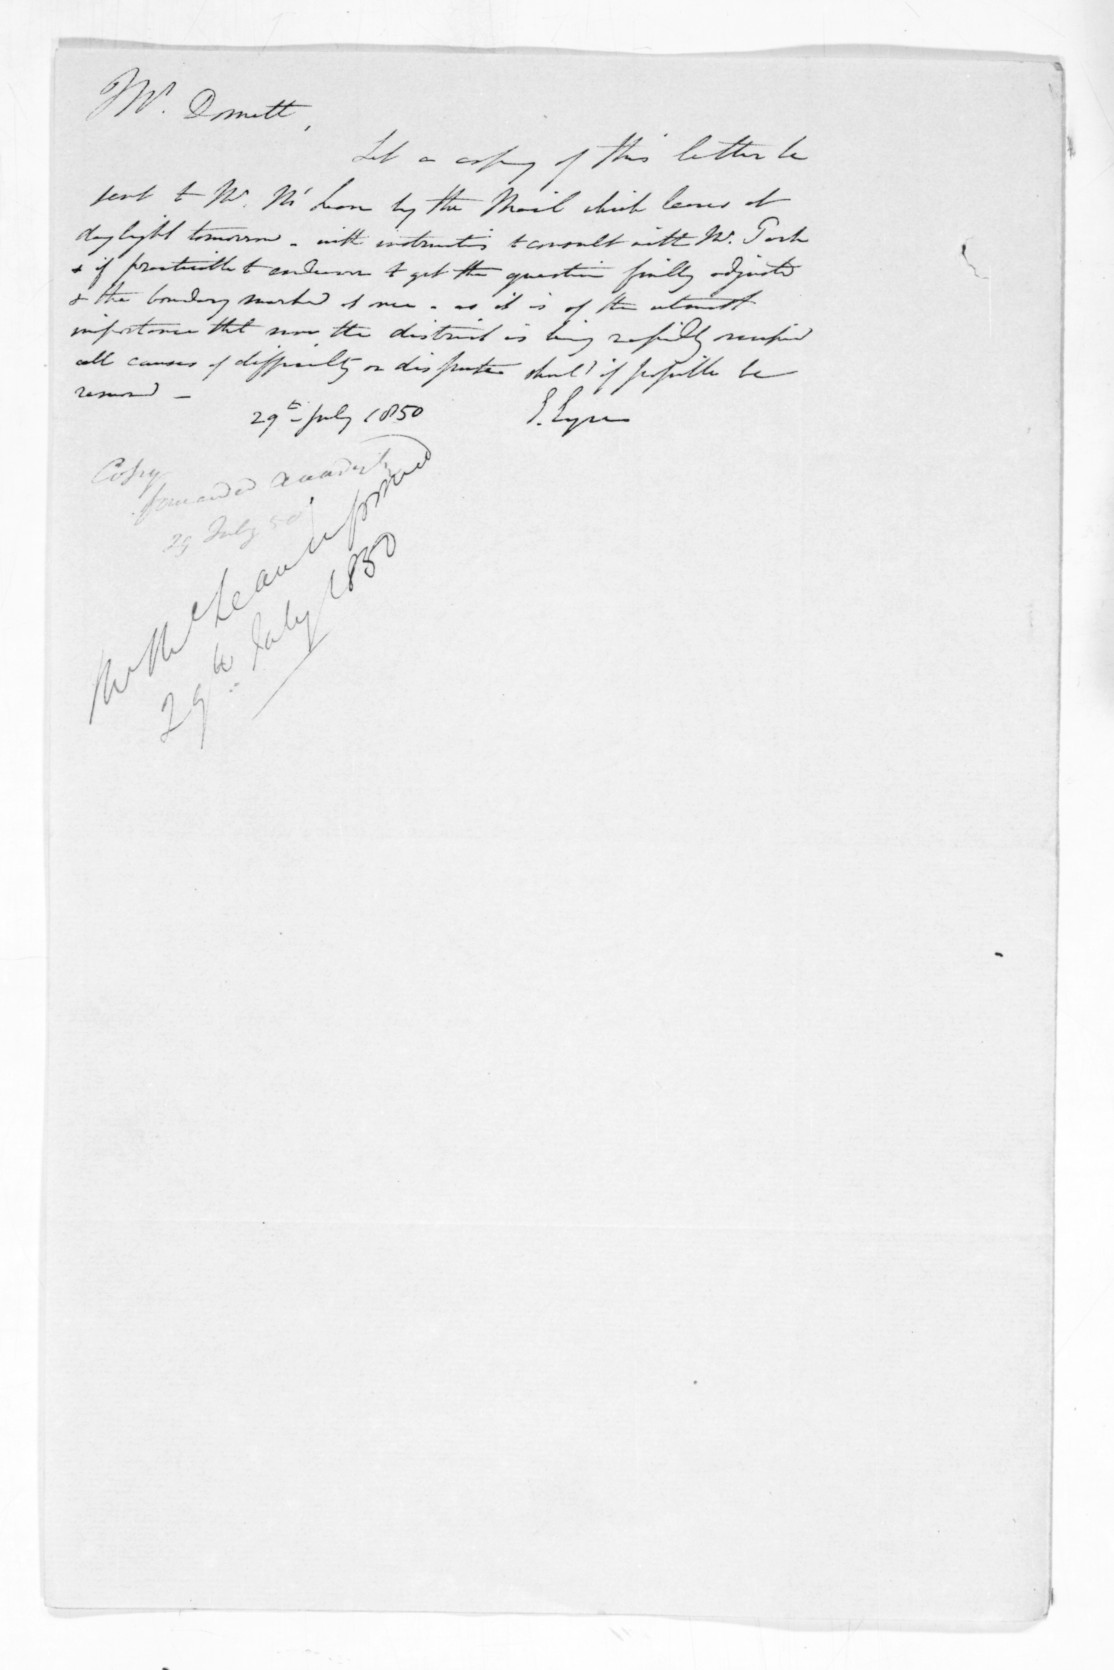 Mr. Domett,
Let a copy of this letter be
sent to Mr. McLean by the Mail which leaves at
daylight tomorrow - with instructions to consult with Mr. Park
& if practicable to endeavour to get the question finally adjusted
& the boundary marked at once - as it is of the utmost
importance that now the district is being rapidly occupied
all causes of difficulty or dispute shoud if possible be
removed -
29th July 1850 E. Eyre
Copy
forwarded
29 July 50
Mr McLean informed
29th July 1850